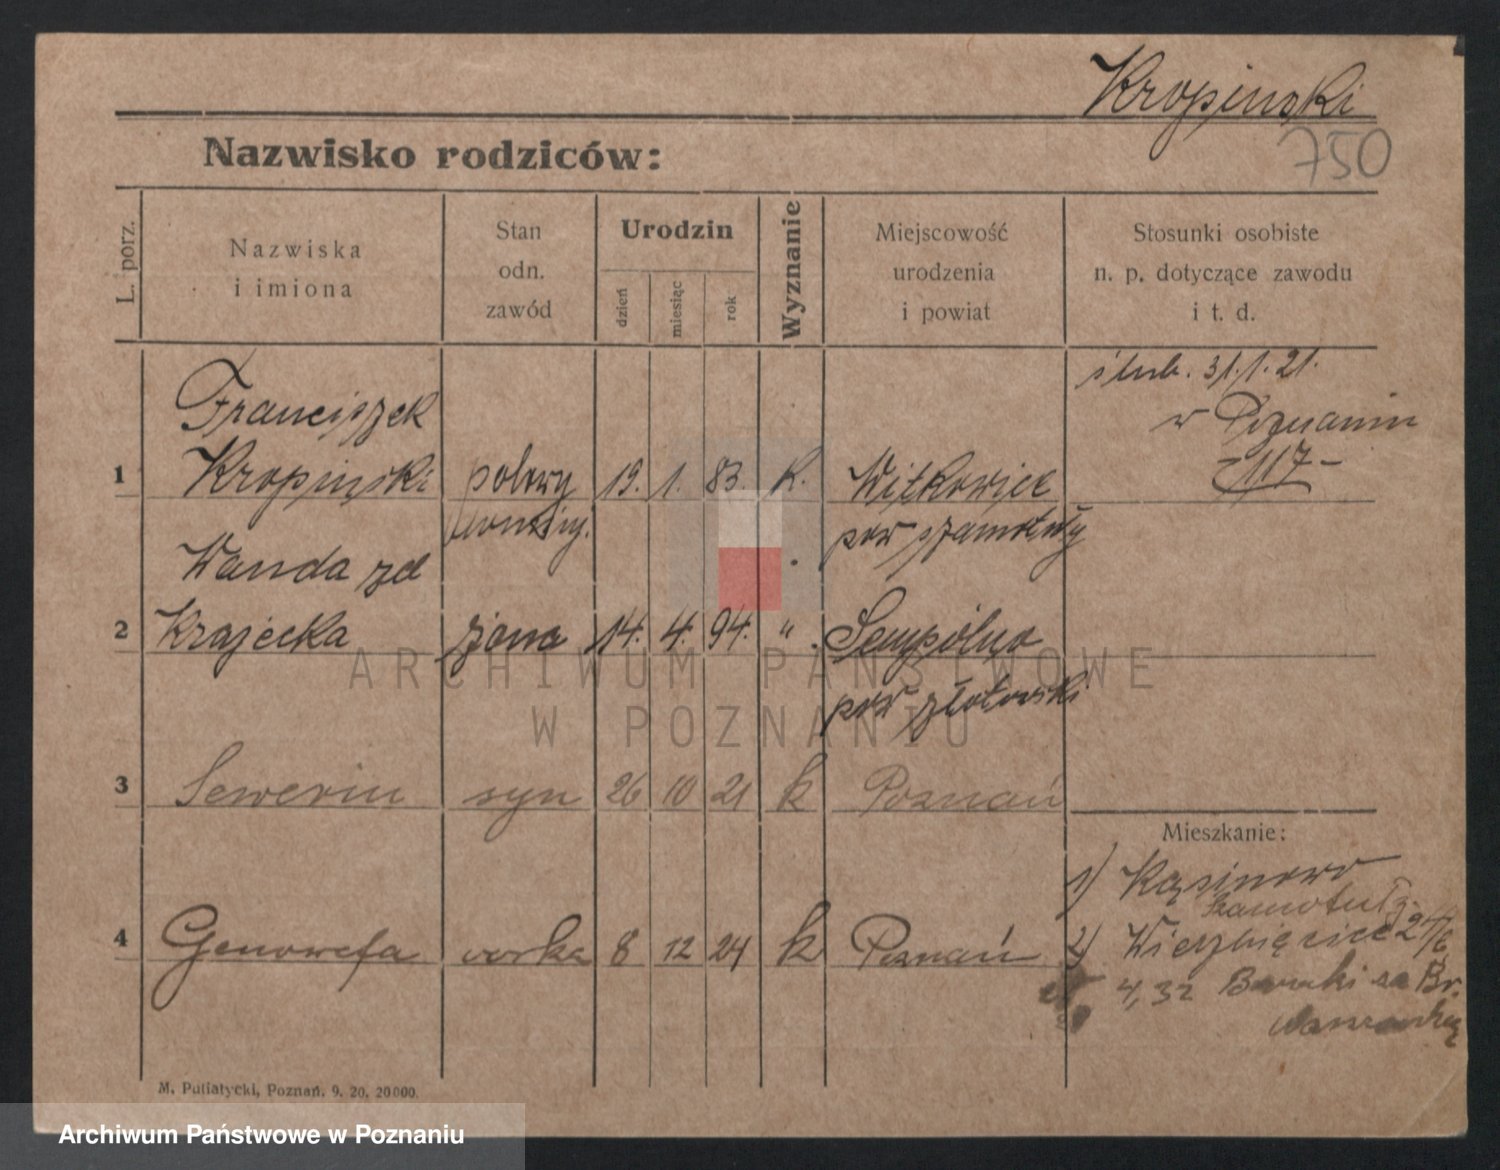 Kropinski
750
Nazwisko rodziców:
L. porz.
Nazwiska
i imiona
Stan
odn.
zawód
Urodzin
dzień
miesiąc
rok
Wyznanie
Miejscowość
urodzenia
i powiat
Stosunki osobiste
n. p. dotyczące zawodu
i t. d.
ślub. 31.1.21.
w Poznaniu
-117-
Franciszek
1 Kropinski polowy 19. 1. 83. k. Witkowice
pow szamotuły
Wanda zd
2 Krajecka żona 14. 4. 94. " Sempólno
pow złotowski
3 Sewerin syn 26 10 21 k Poznań
Mieszkanie:
1) Kąsinowo
Szamotuły
4 Genowefa corka 8 12 24 k Poznań
2) Wierzbięcice
4,32 Baraki za Br.
M. Putiatycki, Poznań. 9. 20. 20000.
ARCHIWUM PAŃSTWOWE
W POZNANIU
Archiwum Państwowe w Poznaniu